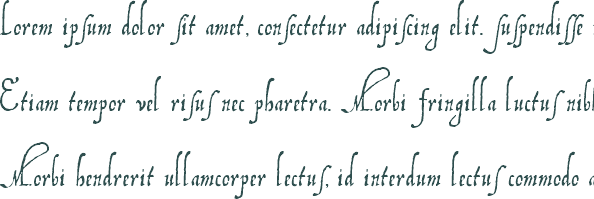 Lorem ipsum dolor sit amet, consectetur adipiscing elit. Suspendisse
Etiam tempor vel risus nec pharetra. Morbi fringilla luctus nibh
Morbi hendrerit ullamcorper lectus, id interdum lectus commodo a